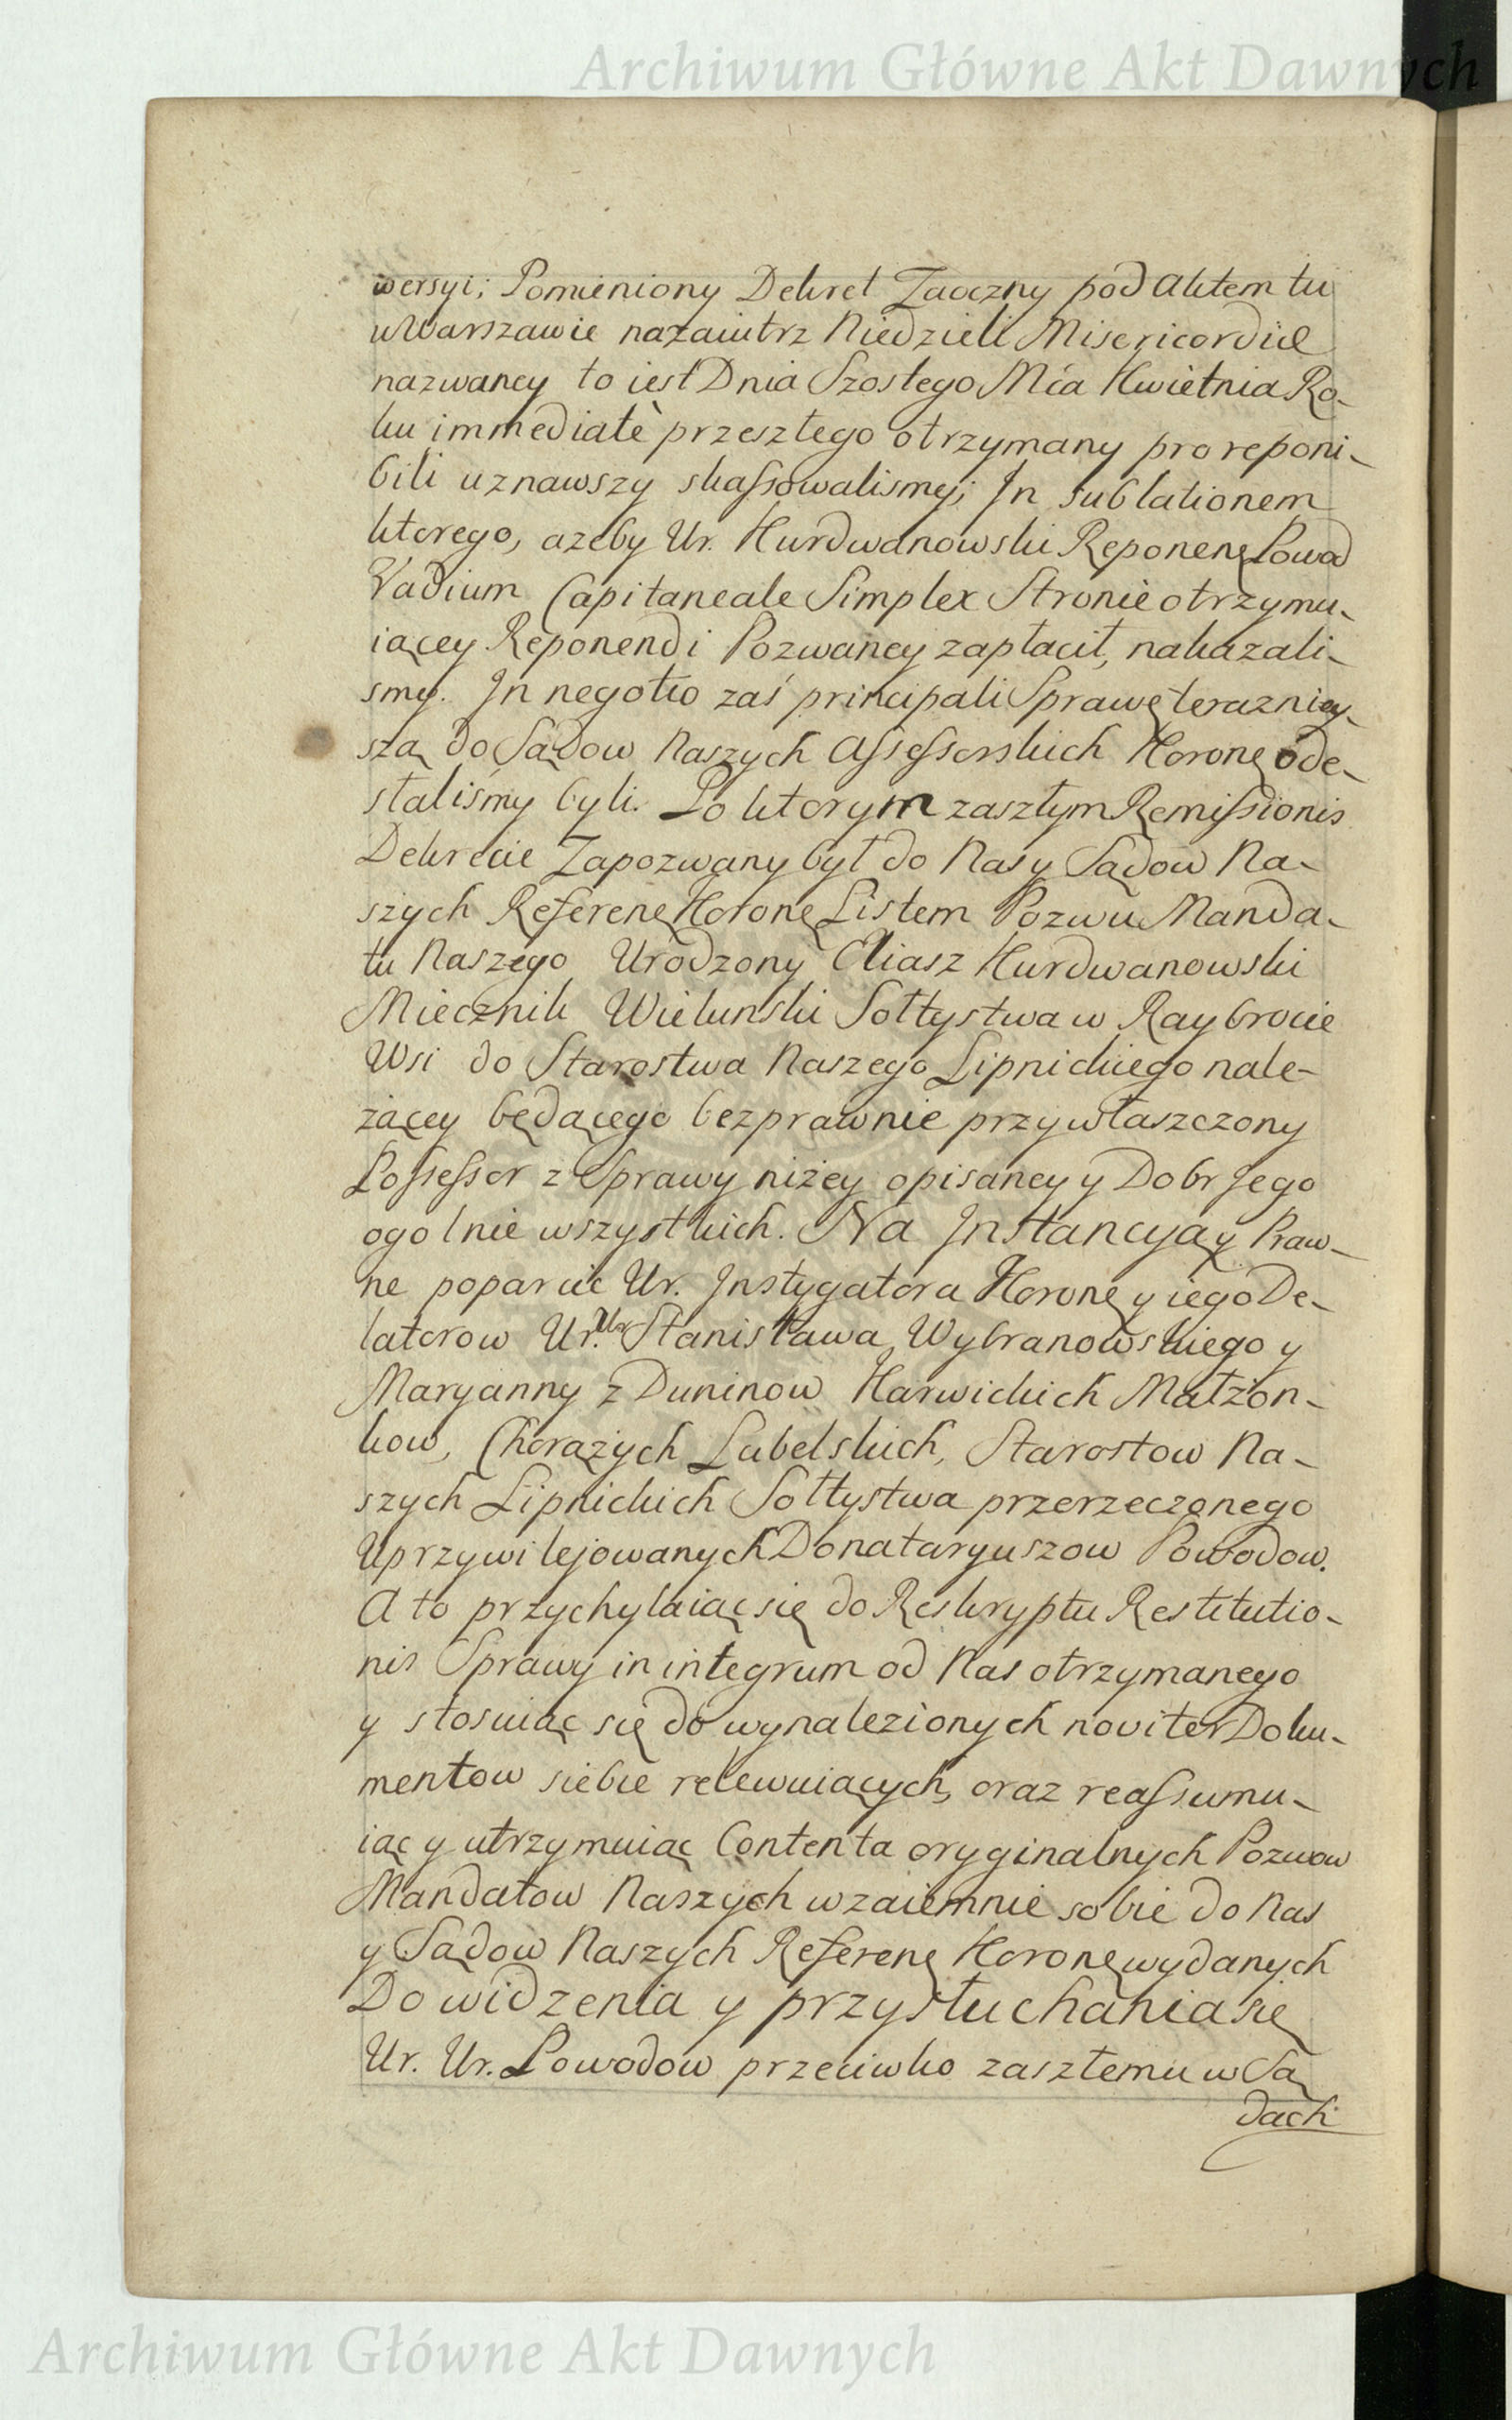 Archiwum Główne Akt Dawnych
wersyi; Pomieniony Dekret Zaoczny pod Aktem tu
w Warszawie nazaiutrz Niedzieli Misericordiæ
nazwaney to iest Dnia Szostego Mća Kwietnia Ro-
ku immediatè przeszłego otrzymany pro reponi-
bili uznawszy skassowalismy; In sublationem
ktorego, azeby Ur. Hurdwanowski Reponenę Powod
Vadium Capitaneale Simplex Stronie otrzymu-
iącey Reponendi Pozwaney zapłacił, nakazali-
smy. In negotio zaś principali Sprawę terazniey-
szą do Sądow Naszych Assessorskich Koronę ode-
słaliśmy byli. Po ktorym zaszłym Remissionis
Dekrecie Zapozwany był do Nas y Sądow Na-
szych Referenę Koronę Listem Pozwu Manda-
tu Naszego Urodzony Eliasz Hurdwanowski
Miecznik Wielunski Sołtystwa w Raybrocie
Wsi do Starostwa Naszego Lipnickiego nale-
żącey będącego bezprawnie przywłaszczony
Possessor z Sprawy niżey opisaney y Dobr Jego
ogolnie wszystkich. Na Instancyą y Praw-
ne poparcie Ur. Instygatora Koronę y iego De-
latorow Ur. Ur. Stanisława Wybranowskiego y
Maryanny z Duninow Karwickich Małżon-
kow, Chorążych Lubelskich, Starostow Na-
szych Lipnickich Sołtystwa przerzeczonego
Uprzywilejowanych Donataryuszow Powodow.
A to przychylaiąc się do Reskryptu Restitutio-
nis Sprawy in integrum od Nas otrzymanego
y stosuiąc się do wynalezionych noviter Doku-
mentow siebie relewuiących, oraz reassumu-
iąc y utrzymuiąc Contenta oryginalnych Pozwow
Mandatow Naszych wzaiemnie sobie do Nas
y Sądow Naszych Referenę Koronę wydanych
Do widzenia y przysłuchania się
Ur. Ur. Powodow przeciwko zaszłemu w Są
dach
Archiwum Główne Akt Dawnych